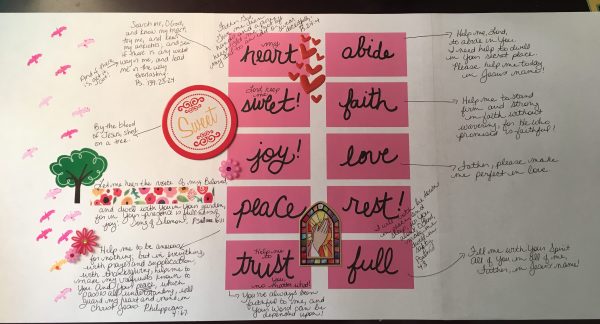 Search me, O God,
and know my heart,
try me, and know
my anxieties; and see
if there is any wicked
way in me, and lead
me in the way
everlasting.
Ps. 139:23-24
my
heart
abide
Help me, Lord,
to abide in You.
I need help to dwell
in Your secret place.
Please help me today
in Jesus' name!
Lord keep
me
sweet!
faith
Help me to stand
firm and strong
in faith without
wavering, for He who
promised is faithful!
Sweet
By the blood
of Jesus, shed
on a tree.
joy!
love
Father, please make
me perfect in love.
Let me hear the voice of my Beloved,
and dwell with You in Your garden,
for in Your presence is fullness of
joy. Song of Solomon, Psalm 16:11
peace
rest!
Help me to be anxious
for nothing, but in everything,
with prayer and supplication,
with thanksgiving, help me to
make my requests known to
You. And Your peace, which
passes all understanding, will
guard my heart and mind in
Christ Jesus. Philippians
4:6-7
Help me to
trust
no matter what!
full
Fill me with Your Spirit
All of You in all of me,
Father, in Jesus' name!
You've always been
faithful to me, and
Your Word can be
depended upon!